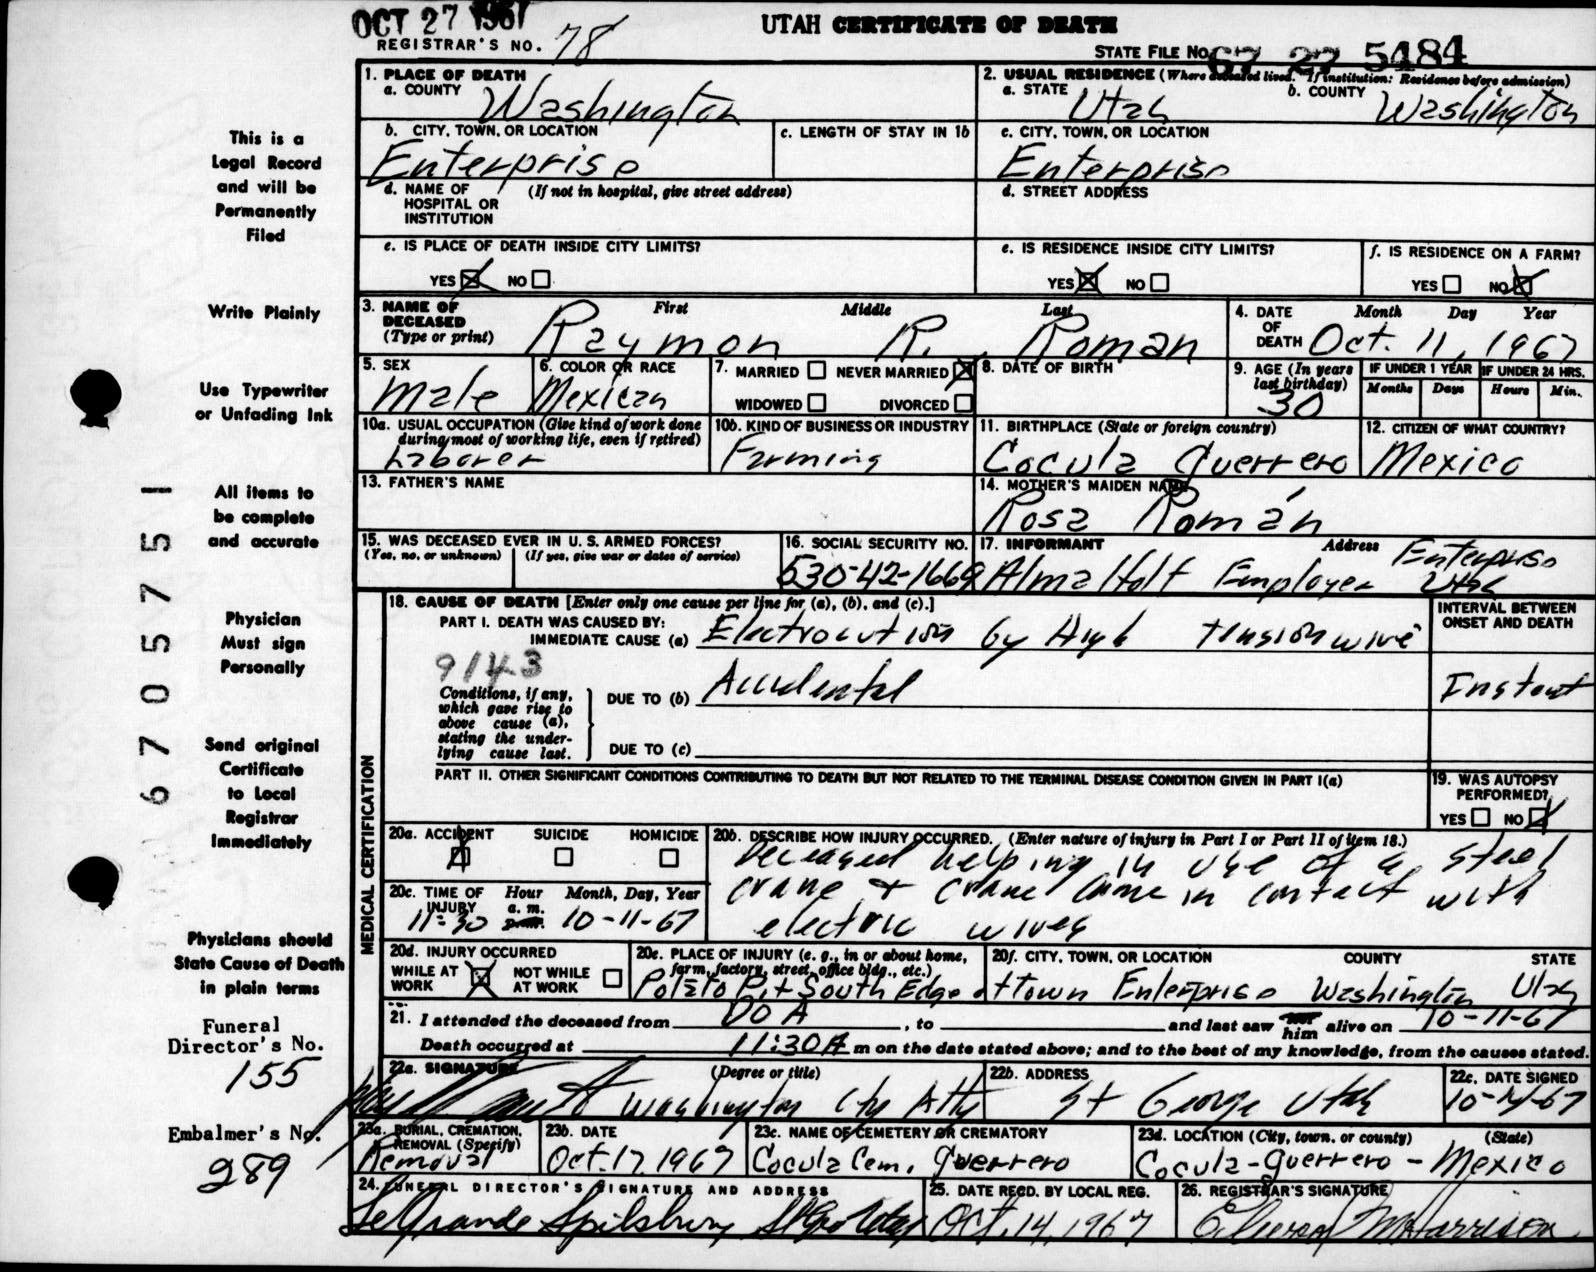 OCT 27 1967
UTAH CERTIFICATE OF DEATH
REGISTRAR'S NO. 78
STATE FILE NO. 67 27 5484
This is a
Legal Record
and will be
Permanently
Filed
Write Plainly
Use Typewriter
or Unfading Ink
All items to
be complete
and accurate
Physician
Must sign
Personally
Send original
Certificate
to Local
Registrar
Immediately
Physicians should
State Cause of Death
in plain terms
Funeral
Director's No.
155
Embalmer's No.
289
6705751
1. PLACE OF DEATH
a. COUNTY Washington
2. USUAL RESIDENCE (Where deceased lived. If institution: Residence before admission)
a. STATE Utah b. COUNTY Washington
b. CITY, TOWN, OR LOCATION
Enterprise
c. LENGTH OF STAY IN 1b
c. CITY, TOWN, OR LOCATION
Enterprise
d. NAME OF (If not in hospital, give street address)
HOSPITAL OR
INSTITUTION
d. STREET ADDRESS
e. IS PLACE OF DEATH INSIDE CITY LIMITS?
YES NO
e. IS RESIDENCE INSIDE CITY LIMITS?
YES NO
f. IS RESIDENCE ON A FARM?
YES NO
3. NAME OF First Middle Last
DECEASED
(Type or print) Raymon R. Roman
4. DATE Month Day Year
OF
DEATH Oct. 11, 1967
5. SEX
Male
6. COLOR OR RACE
Mexican
7. MARRIED NEVER MARRIED
WIDOWED DIVORCED
8. DATE OF BIRTH
9. AGE (In years
last birthday)
30
IF UNDER 1 YEAR IF UNDER 24 HRS.
Months Days Hours Min.
10a. USUAL OCCUPATION (Give kind of work done
during most of working life, even if retired)
Laborer
10b. KIND OF BUSINESS OR INDUSTRY
Farming
11. BIRTHPLACE (State or foreign country)
Cocula Guerrero
12. CITIZEN OF WHAT COUNTRY?
Mexico
13. FATHER'S NAME
14. MOTHER'S MAIDEN NAME
Rosa Román
15. WAS DECEASED EVER IN U. S. ARMED FORCES?
(Yes, no, or unknown) (If yes, give war or dates of service)
16. SOCIAL SECURITY NO.
530-42-1669
17. INFORMANT Address Enterprise
Alma Holt Employer Utah
MEDICAL CERTIFICATION
18. CAUSE OF DEATH [Enter only one cause per line for (a), (b), and (c).]
PART I. DEATH WAS CAUSED BY:
IMMEDIATE CAUSE (a) Electrocution by High tension wire
INTERVAL BETWEEN
ONSET AND DEATH
Instant
9143
Conditions, if any,
which gave rise to
above cause (a),
stating the under-
lying cause last.
DUE TO (b) Accidental
DUE TO (c)
PART II. OTHER SIGNIFICANT CONDITIONS CONTRIBUTING TO DEATH BUT NOT RELATED TO THE TERMINAL DISEASE CONDITION GIVEN IN PART I(a)
19. WAS AUTOPSY
PERFORMED?
YES NO
20a. ACCIDENT SUICIDE HOMICIDE
20b. DESCRIBE HOW INJURY OCCURRED. (Enter nature of injury in Part I or Part II of item 18.)
Deceased helping in use of a steel
crane & crane came in contact with
electric wires
20c. TIME OF Hour Month, Day, Year
INJURY a. m.
11:30 p.m. 10-11-67
20d. INJURY OCCURRED
WHILE AT NOT WHILE
WORK AT WORK
20e. PLACE OF INJURY (e. g., in or about home,
farm, factory, street, office bldg., etc.)
Potato Pit South Edge of Town
20f. CITY, TOWN, OR LOCATION COUNTY STATE
Enterprise Washington Utah
21. I attended the deceased from DOA, to and last saw him alive on 10-11-67
Death occurred at 11:30 A m on the date stated above; and to the best of my knowledge, from the causes stated.
22a. SIGNATURE (Degree or title)
Washington Cty Atty
22b. ADDRESS
St George Utah
22c. DATE SIGNED
10-14-67
23a. BURIAL, CREMATION,
REMOVAL (Specify)
Removal
23b. DATE
Oct. 17, 1967
23c. NAME OF CEMETERY OR CREMATORY
Cocula Cem. Guerrero
23d. LOCATION (City, town, or county) (State)
Cocula-Guerrero-Mexico
24. FUNERAL DIRECTOR'S SIGNATURE AND ADDRESS
LeGrande Spilsbury St Geo Utah
25. DATE RECD. BY LOCAL REG.
Oct. 14, 1967
26. REGISTRAR'S SIGNATURE
Harrison